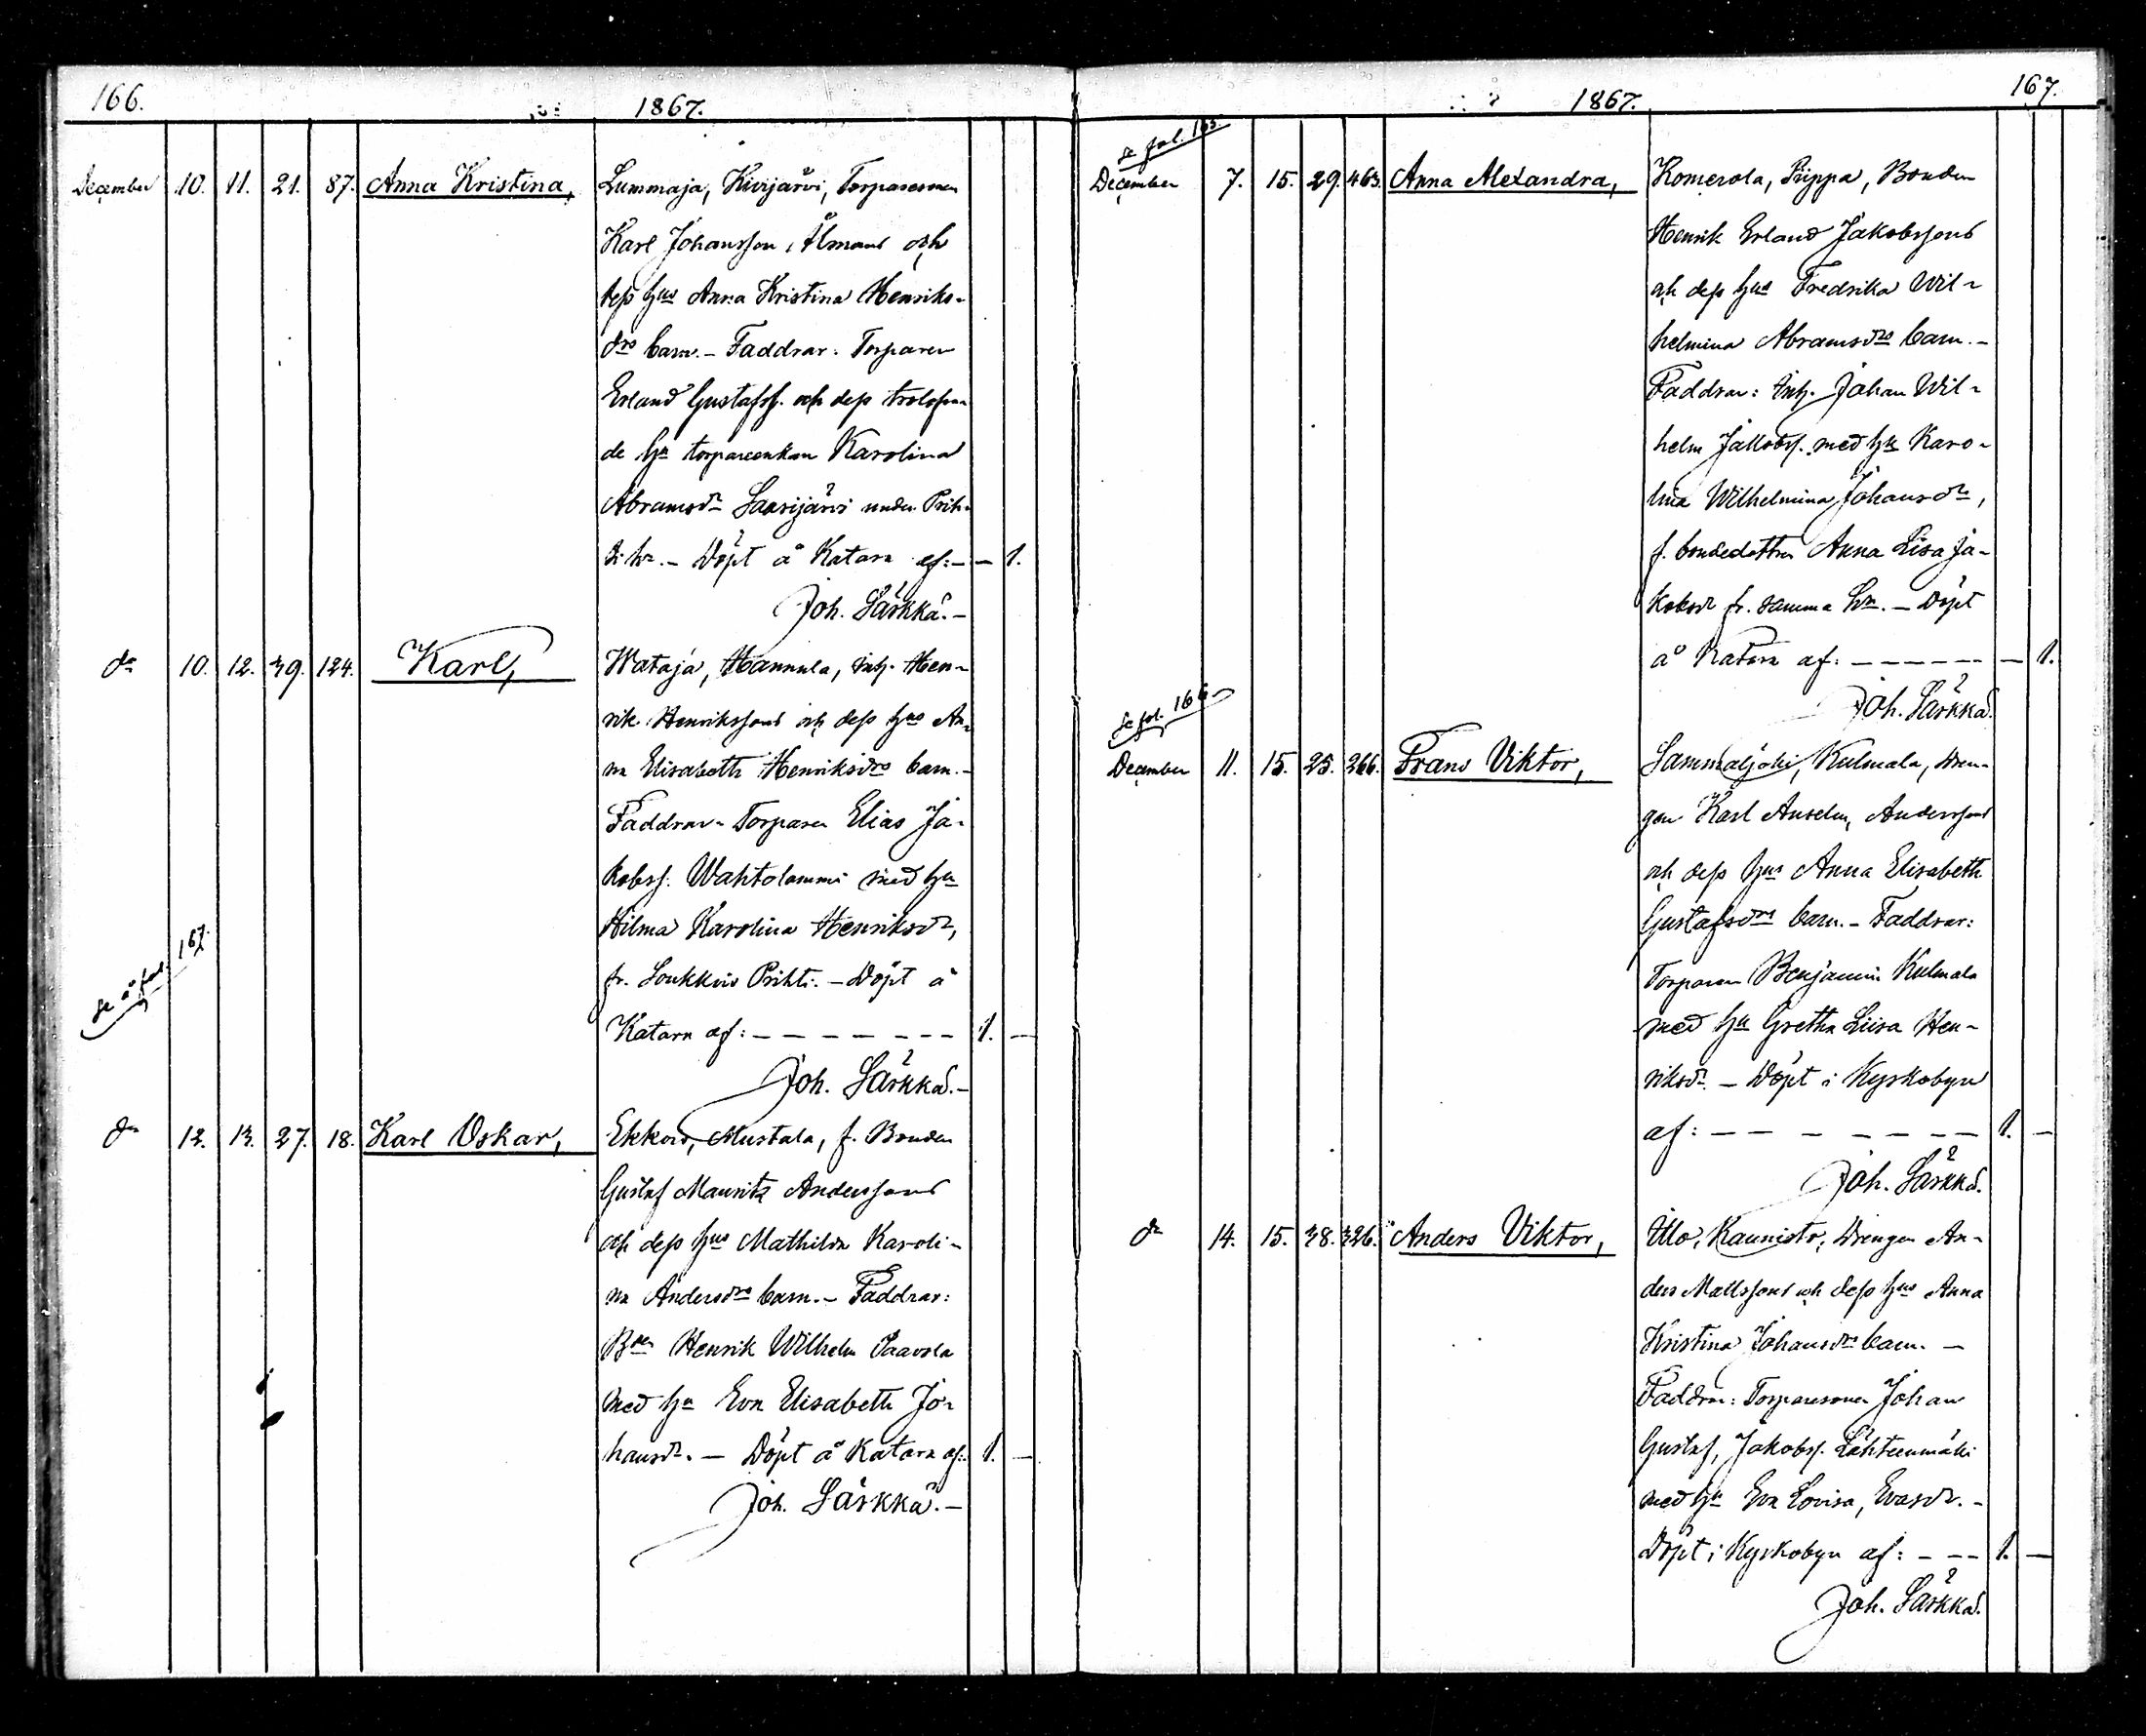 166.
1867.
December 10. 11. 21. 87. Anna Kristina, Lummaja, Kivijärvi, Torparesonen
Karl Johansson Älmans och
dess hus Anna Kristina Henriks-
drs barn. – Faddrar: Torparen
Erland Gustafss. och dess trolofva-
de hu torpareenkan Karolina
Abramsdr Saarijärvi under Prih-
ti hn. – Döpt å Katara af: – – 1.
Joh. Särkkä. –
do 10. 12. 39. 124. Karl, Wataja, Hannula, inh. Hen-
rik Henrikssons och dess hus An-
na Elisabeth Henriksdrs barn. –
Faddrar: Torparen Elias Ja-
kobss. Wahtolammi med hu
Hilma Karolina Henriksdr,
fr. Loukkois Prihti. – Döpt å
Katara af: – – – – – – – 1. –
Joh. Särkkä. –
se å fol. 167.
do 12. 13. 27. 18. Karl Oskar, Ekkois, Mustala, f. Bonden
Gustaf Mauritz Anderssons
och dess hus Mathilda Karoli-
na Andersdrs barn. – Faddrar:
Bden Henrik Wilhelm Paavola
med hu Eva Elisabeth Jo-
hansdr. – Döpt å Katara af: 1. –
Joh. Särkkä. –
167.
1867.
se fol. 165.
December 7. 15. 29. 463. Anna Alexandra, Romerola, Piippa, Bonden
Henrik Erland Jakobssons
och dess hus Fredrika Wil-
helmina Abramsdrs barn. –
Faddrar: Inh. Johan Wil-
helm Jakobss. med hu Karo-
lina Wilhelmina Johansdr,
f. bondedottren Anna Lisa Ja-
kobsdr fr. samma hn. – Döpt
å Katara af: – – – – – – – 1.
Joh. Särkkä.
se fol. 166
December 11. 15. 25. 266. Frans Viktor, Sammaljoki, Kulmala, Dren-
gen Karl Anselm, Anderssons
och dess hus Anna Elisabeth
Gustafsdrs barn. – Faddrar:
Torparen Benjamin Kulmala
med hu Gretha Liisa Hen-
riksdr. – Döpt i Kyrkobyn
af: – – – – – – – 1. –
Joh. Särkkä.
do 14. 15. 38. 326. Anders Viktor, Illo, Kaunisto, Drengen An-
ders Mattssons och dess hus Anna
Kristina Johansdrs barn. –
Faddrar: Torparesonen Johan
Gustaf, Jakobss. Lähteenmäki
med hu Eva Lovisa, Evasdr. –
Döpt i Kyrkobyn af: – – – 1. –
Joh. Särkkä.